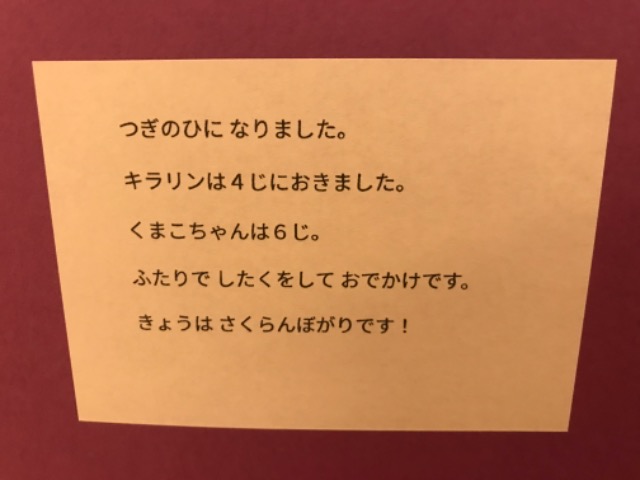 つぎのひに なりました。
キラリンは４じにおきました。
くまこちゃんは６じ。
ふたりで したくをして おでかけです。
きょうは さくらんぼがりです！